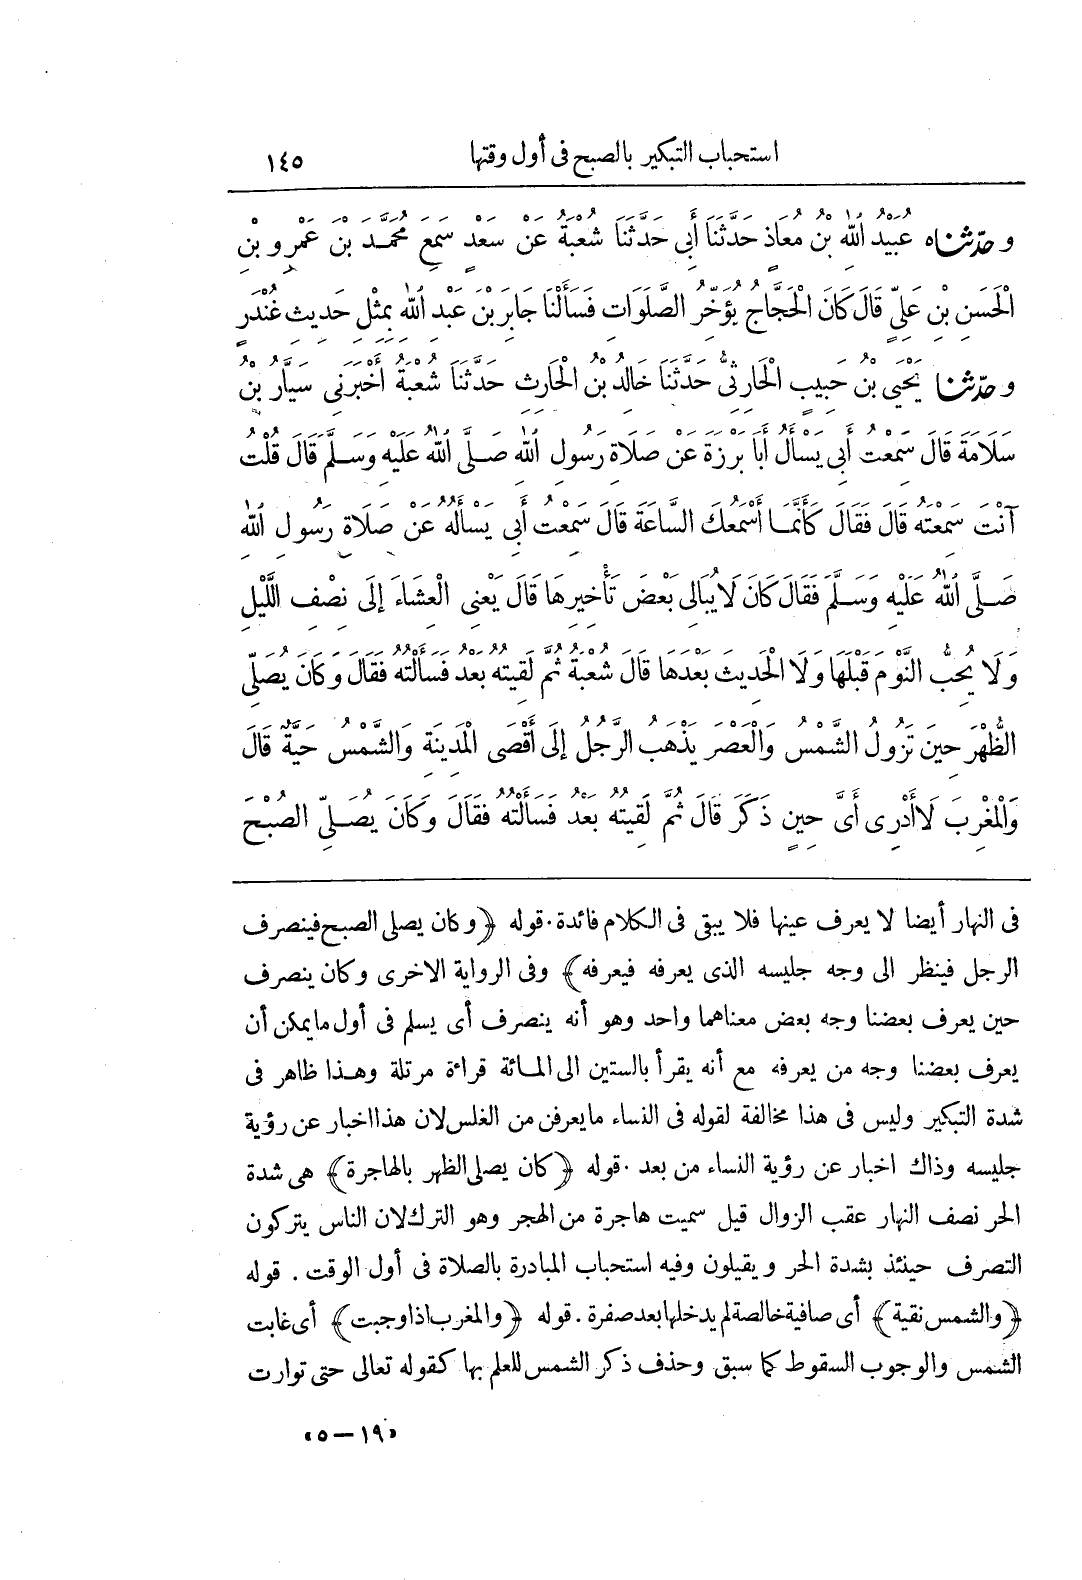 استحباب التبكير بالصبح فى أول وقتها ١٤٥
و حَدَّثَنَاه عُبَيْدُ اللهِ بْنُ مُعَاذٍ حَدَّثَنَا أَبِى حَدَّثَنَا شُعْبَةُ عَنْ سَعْدٍ سَمِعَ مُحَمَّدَ بْنَ عَمْرِو بْنِ
الْحَسَنِ بْنِ عَلِىٍّ قَالَ كَانَ الْحَجَّاجُ يُؤَخِّرُ الصَّلَوَاتِ فَسَأَلْنَا جَابِرَ بْنَ عَبْدِ اللهِ بِمِثْلِ حَدِيثِ غُنْدَرٍ
و حَدَّثَنَا يَحْيَى بْنُ حَبِيبٍ الْحَارِثِىُّ حَدَّثَنَا خَالِدُ بْنُ الْحَارِثِ حَدَّثَنَا شُعْبَةُ أَخْبَرَنِى سَيَّارُ بْنُ
سَلَامَةَ قَالَ سَمِعْتُ أَبِى يَسْأَلُ أَبَا بَرْزَةَ عَنْ صَلَاةِ رَسُولِ اللهِ صَلَّى اللهُ عَلَيْهِ وَسَلَّمَ قَالَ قُلْتُ
آنْتَ سَمِعْتَهُ قَالَ فَقَالَ كَأَنَّمَا أَسْمَعُكَ السَّاعَةَ قَالَ سَمِعْتُ أَبِى يَسْأَلُهُ عَنْ صَلَاةِ رَسُولِ اللهِ
صَلَّى اللهُ عَلَيْهِ وَسَلَّمَ فَقَالَ كَانَ لَا يُبَالِى بَعْضَ تَأْخِيرِهَا قَالَ يَعْنِى الْعِشَاءَ إِلَى نِصْفِ اللَّيْلِ
وَلَا يُحِبُّ النَّوْمَ قَبْلَهَا وَلَا الْحَدِيثَ بَعْدَهَا قَالَ شُعْبَةُ ثُمَّ لَقِيتُهُ بَعْدُ فَسَأَلْتُهُ فَقَالَ وَكَانَ يُصَلِّى
الظُّهْرَ حِينَ تَزُولُ الشَّمْسُ وَالْعَصْرَ يَذْهَبُ الرَّجُلُ إِلَى أَقْصَى الْمَدِينَةِ وَالشَّمْسُ حَيَّةٌ قَالَ
وَالْمَغْرِبَ لَا أَدْرِى أَىَّ حِينٍ ذَكَرَ قَالَ ثُمَّ لَقِيتُهُ بَعْدُ فَسَأَلْتُهُ فَقَالَ وَكَانَ يُصَلِّى الصُّبْحَ
فى النهار أيضا لا يعرف عينها فلا يبقى فى الكلام فائدة . قوله ﴿وكان يصلى الصبح فينصرف
الرجل فينظر الى وجه جليسه الذى يعرفه فيعرفه﴾ وفى الرواية الاخرى وكان ينصرف
حين يعرف بعضنا وجه بعض معناهما واحد وهو أنه ينصرف أى يسلم فى أول ما يمكن أن
يعرف بعضنا وجه من يعرفه مع أنه يقرأ بالستين الى المائة قراءة مرتلة وهذا ظاهر فى
شدة التبكير وليس فى هذا مخالفة لقوله فى النساء ما يعرفن من الغلس لان هذا اخبار عن رؤية
جليسه وذاك اخبار عن رؤية النساء من بعد . قوله ﴿كان يصلى الظهر بالهاجرة﴾ هى شدة
الحر نصف النهار عقب الزوال قيل سميت هاجرة من الهجر وهو الترك لان الناس يتركون
التصرف حينئذ بشدة الحر ويقيلون وفيه استحباب المبادرة بالصلاة فى أول الوقت . قوله
﴿والشمس نقية﴾ أى صافية خالصة لم يدخلها بعد صفرة . قوله ﴿والمغرب اذا وجبت﴾ أى غابت
الشمس والوجوب السقوط كما سبق وحذف ذكر الشمس للعلم بها كقوله تعالى حتى توارت
«١٩ — ٥»